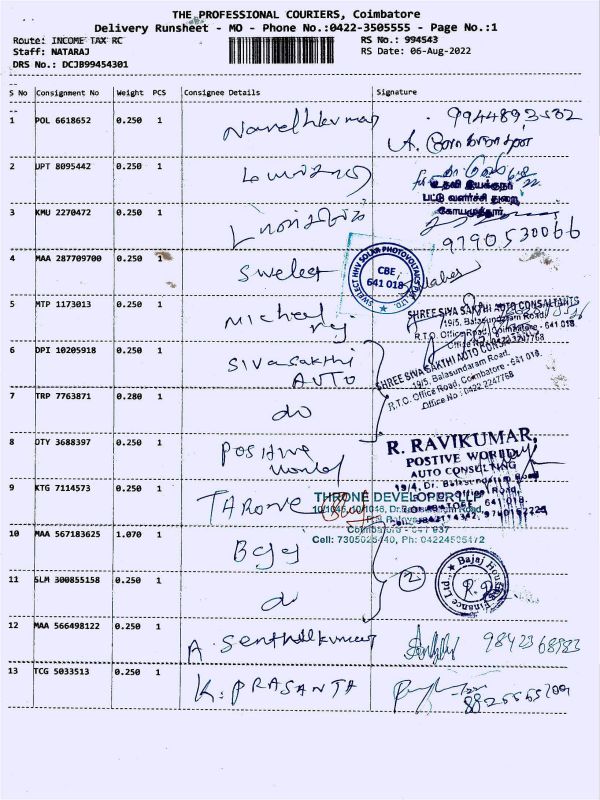 THE PROFESSIONAL COURIERS, Coimbatore
Delivery Runsheet - MO - Phone No.:0422-3505555 - Page No.:1
Route: INCOME TAX RC RS No.: 994543
Staff: NATARAJ RS Date: 06-Aug-2022
DRS No.: DCJB99454301
S No Consignment No Weight PCS Consignee Details Signature
1 POL 6618652 0.250 1 9944892532
2 UPT 8095442 0.250 1
உதவி இயக்குநர்
பட்டு வளர்ச்சி துறை,
கோயமுத்தூர்
3 KMU 2270472 0.250 1
9790530066
4 MAA 287709700 0.250 1 Swelect
SWELECT HHV SOLAR PHOTOVOLTAICS PVT. LTD
CBE
641 018
5 MTP 1173013 0.250 1 Micheal
SHREE SIVA SAKTHI AUTO CONSALTANTS
19/5, Balasundaram Road,
R.T.O. Office Road, Coimbatore - 641 018.
Office No : 0422 2247768
6 DPI 10205918 0.250 1 Sivasakthi
AUTO
SHREE SIVA SAKTHI AUTO CONSALTANTS
19/5, Balasundaram Road,
R.T.O. Office Road, Coimbatore - 641 018.
Office No : 0422 2247768
7 TRP 7763871 0.280 1 do
8 OTY 3688397 0.250 1 Positive
World
R. RAVIKUMAR,
POSTIVE WORLD
AUTO CONSULTING
9 KTG 7114573 0.250 1 Throne
THRONE DEVELOPER LLP
Cell: 7305026440, Ph: 04224506472
10 MAA 567183625 1.070 1 Bajaj
11 SLM 300855158 0.250 1 do 2
Bajaj Housing Finance Ltd.,
12 MAA 566498122 0.250 1 A. Senthilkumar 9842368983
13 TCG 5033513 0.250 1 K. PRASANTA